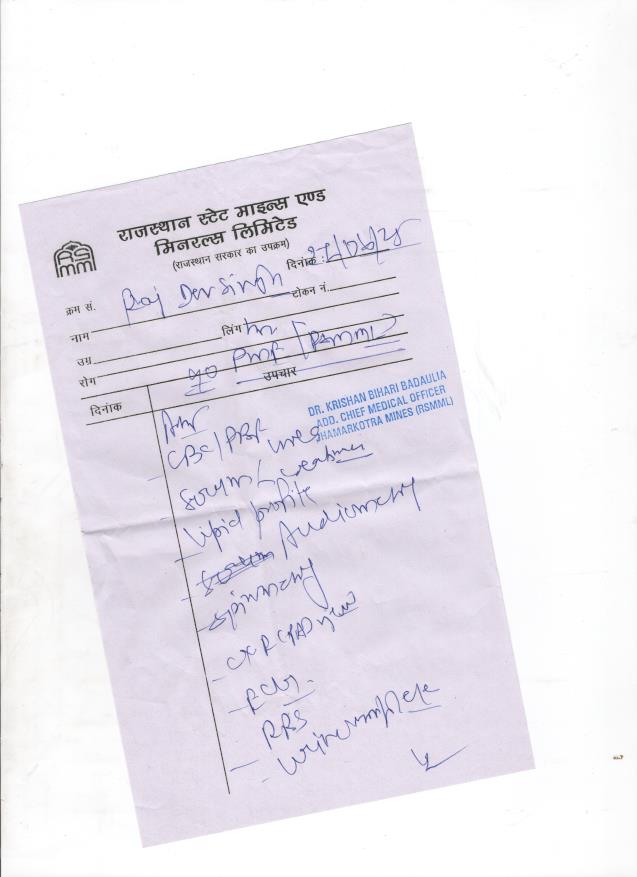 राजस्थान स्टेट माइन्स एण्ड
मिनरल्स लिमिटेड
(राजस्थान सरकार का उपक्रम)
RS
MM
दिनांक :
क्रम सं.
Raj Dev Singh
टोकन नं.
नाम
लिंग
उम्र
रोग
उपचार
दिनांक
DR. KRISHAN BIHARI BADAULIA
ADD. CHIEF MEDICAL OFFICER
JHAMARKOTRA MINES (RSMML)
CBC/PBF
Serum
lipid profile
Audiometry
Spirometry
CXR (PA) view
ECG
RBS